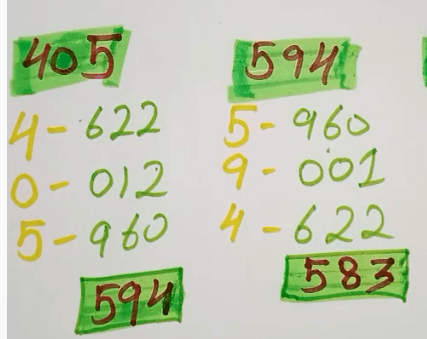 405
4 - 622
0 - 012
5 - 960
594
594
5 - 960
9 - 001
4 - 622
583